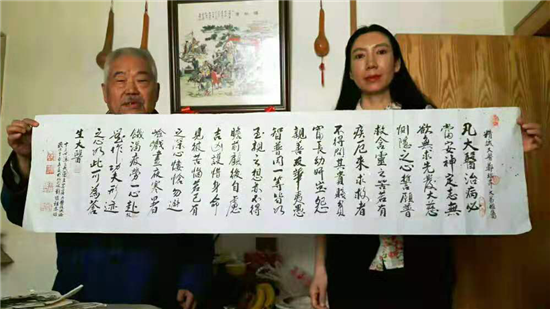 凡大醫治病必
當安神定志無
欲無求先發大慈
惻隱之心誓願普
救含靈之苦若有
疾厄來求救者
不得問其貴賤貧
富長幼妍蚩怨
親善友華夷愚
智普同一等皆如
至親之想亦不得
瞻前顧後自慮
吉凶護惜身命
見彼苦惱若己有
之深心悽愴勿避
險巇晝夜寒暑
飢渴疲勞一心赴
救無作功夫形迹
之心以此可為蒼
生大醫